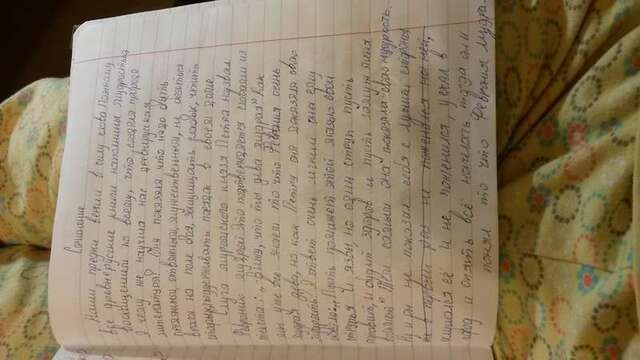 Сочинение
Наши предки верили в силу слова. Поэтому
все древнерусские книги наполнены мудростью
восхищением ко всему, что создала природа
А чему же научила нас древнерусская
литература? Она показала что надо быть
отважным, мужественным, не бояться
врага на поле боя, защищать слабых, чтить
старших, поддерживать порядок в своём доме.
муромского князя Петра назвал
Февронию мудрой. Это подтверждается словами из
текста: „Вижу, что ты дева мудрая" Как
мы уже все знаем то что Феврония очень
мудрая дева, но как Петру она доказала свою
мудрость. А ответ очень лёгкий она ему
Пусть помажет этой мазью свои
струпья и язвы но один струп пусть
и будет здоров и пусть замуж меня
возьмёт" Тем самым она показала свою мудрость.
Ну и он не показал себя с лучшей стороны
он в первый раз не поженился на ней,
её и не, поженился, уехал в
город и опять всё началось тогда он и
понял то что Феврония мудра.